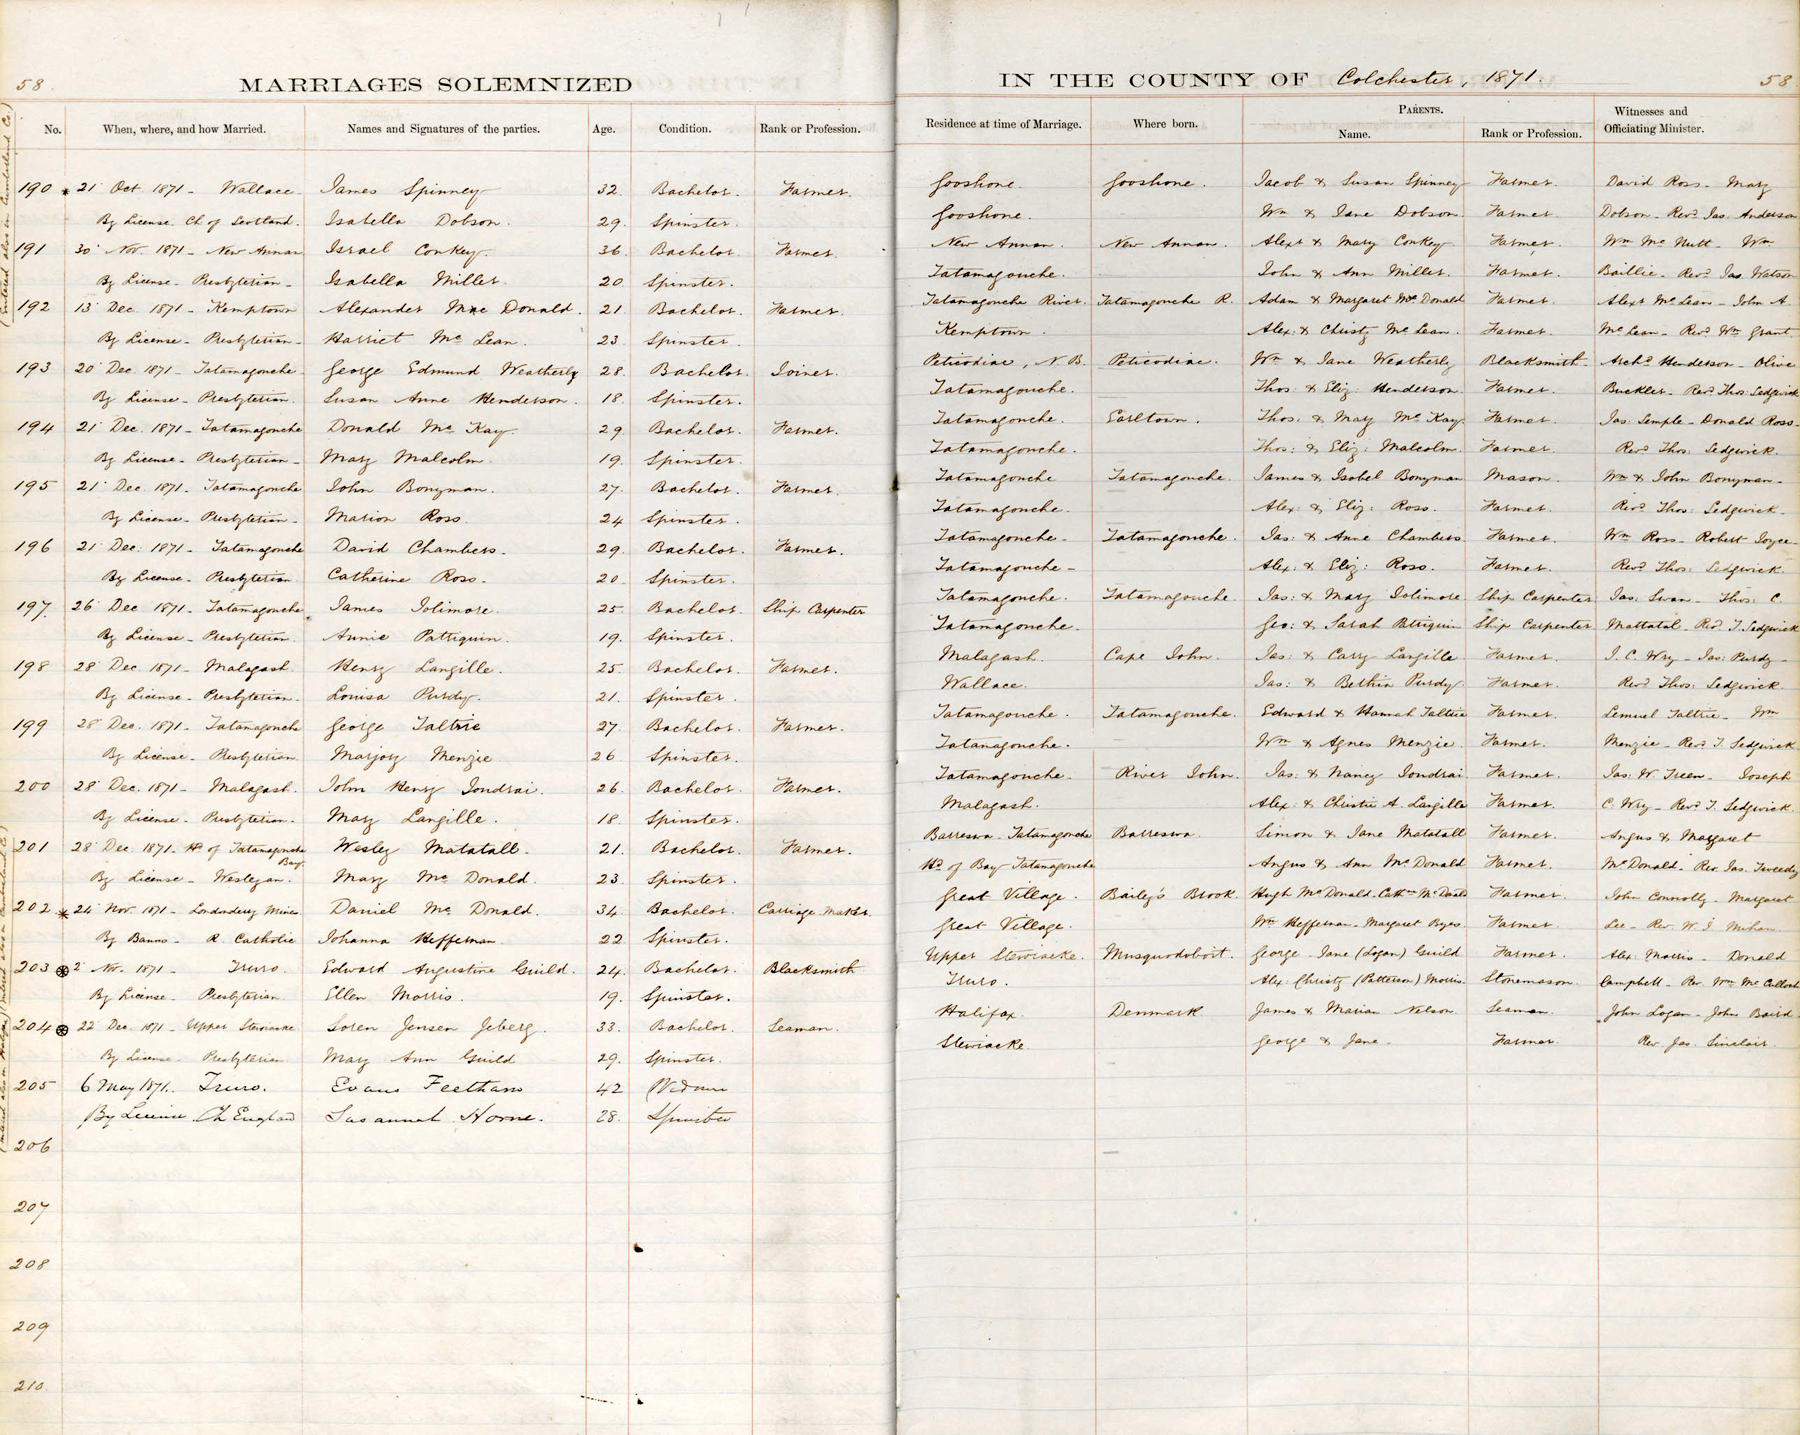 58
MARRIAGES SOLEMNIZED
IN THE COUNTY OF Colchester, 1871.
58
No. When, where, and how Married. Names and Signatures of the parties. Age. Condition. Rank or Profession. Residence at time of Marriage. Where born. PARENTS. Name. Rank or Profession. Witnesses and Officiating Minister.
190 * 21 Oct. 1871 - Wallace James Spinney 32 Bachelor. Farmer. Gooshone. Gooshone. Jacob & Susan Spinney Farmer. David Ross - Mary
By License. Ch of Scotland. Isabella Dobson. 29. Spinster. Gooshone. Wm & Jane Dobson Farmer. Dobson - Revd Jas. Anderson
191 30 Nov. 1871 - New Annan Israel Conkey. 36. Bachelor. Farmer. New Annan. New Annan. Alexr & Mary Conkey Farmer. Wm Mc Nutt - Wm
By License - Presbyterian - Isabella Miller. 20 Spinster. Tatamagouche. John & Ann Miller. Farmer. Baillie - Revd Jas. Watson
192 13 Dec. 1871 - Kemptown Alexander Mac Donald. 21. Bachelor. Farmer. Tatamagouche River. Tatamagouche R. Adam & Margaret Mc Donald Farmer. Alexr Mc Lean - John A.
By License - Presbyterian - Harriet Mc Lean. 23 Spinster. Kemptown. Alex: & Christy Mc Lean. Farmer. Mc Lean - Revd Wm Grant
193 20 Dec. 1871 - Tatamagouche George Edmund Weatherly 28. Bachelor. Joiner. Peticodiac, N.B. Peticodiac. Wm & Jane Weatherly Blacksmith. Archd Henderson - Olive
By License - Presbyterian. Susan Anne Henderson. 18. Spinster. Tatamagouche. Thos: & Eliz: Henderson. Farmer. Buckler - Revd Thos: Sedgwick
194 21 Dec. 1871 - Tatamagouche Donald Mc Kay. 29 Bachelor. Farmer. Tatamagouche. Earltown. Thos: & Mary Mc Kay. Farmer. Jas: Semple - Donald Ross -
By License - Presbyterian - Mary Malcolm. 19. Spinster. Tatamagouche. Thos: & Eliz: Malcolm. Farmer. Revd Thos: Sedgwick.
195 21 Dec. 1871. Tatamagouche John Bonyman. 27. Bachelor. Farmer. Tatamagouche Tatamagouche. James & Isobel Bonyman Mason. Wm & John Bonyman -
By License - Presbyterian - Marion Ross. 24 Spinster. Tatamagouche. Alex: & Eliz: Ross. Farmer. Revd Thos: Sedgwick.
196 21 Dec. 1871. - Tatamagouche David Chambers. 29. Bachelor. Farmer. Tatamagouche - Tatamagouche. Jas: & Anne Chambers Farmer. Wm Ross - Robert Joyce -
By License - Presbyterian Catherine Ross. 20 Spinster. Tatamagouche - Alex: & Eliz: Ross. Farmer. Revd Thos: Sedgwick.
197. 26 Dec. 1871 - Tatamagouche James Jolimore. 25. Bachelor. Ship Carpenter Tatamagouche. Tatamagouche. Jas: & Mary Jolimore Ship Carpenter Jas: Swan - Thos: C.
By License - Presbyterian. Annie Pattiquin. 19. Spinster. Tatamagouche. Geo: & Sarah Pattiquin Ship Carpenter Mattatal - Revd T. Sedgwick
198 28 Dec. 1871 - Malagash. Henry Langille. 25. Bachelor. Farmer. Malagash. Cape John. Jas: & Carry Langille Farmer. J. C. Wry - Jas: Purdy -
By License - Presbyterian. Louisa Purdy. 21. Spinster. Wallace. Jas: & Bethia Purdy. Farmer. Revd Thos: Sedgwick.
199 28 Dec. 1871. - Tatamagouche George Taltrie 27. Bachelor. Farmer. Tatamagouche. Tatamagouche. Edward & Hannah Taltrie Farmer. Lemuel Taltrie - Wm
By License - Presbyterian. Marjory Menzie 26 Spinster. Tatamagouche. Wm & Agnes Menzie. Farmer. Menzie - Revd T. Sedgwick.
200 28 Dec. 1871 - Malagash. John Henry Jondrai. 26. Bachelor. Farmer. Tatamagouche - River John. Jas: & Nancy Jondrai Farmer. Jas. W. Treen - Joseph
By License - Presbyterian. Mary Langille. 18. Spinster. Malagash. Alex: & Christie A. Langille Farmer. C. Wry - Revd T. Sedgwick.
201 28 Dec. 1871 - Hd of Tatamagouche Bay. Wesley Matatall. 21. Bachelor. Farmer. Barreswa - Tatamagouche Barreswa. Simon & Jane Matatall Farmer. Angus & Margaret
By License - Wesleyan. Mary Mc Donald. 23 Spinster. Hd of Bay Tatamagouche Angus & Ann Mc Donald Farmer. Mc Donald - Rev. Jas. Tweedy
202 * 24 Nov. 1871 - Londonderry Mines Daniel Mc Donald. 34 Bachelor. Carriage Maker. Great Village. Bailey's Brook. Hugh Mc Donald. Farmer. John Connolly - Margaret
By Banns - R. Catholic Johanna Heffernan 22 Spinster. Great Village. Wm Heffernan - Margaret Farmer. Lee - Rev. W. J.
203 2 Nov. 1871 - Truro. Edward Augustine Guild. 24. Bachelor. Blacksmith Upper Stewiacke. Musquodoboit. George - Jane (Logan) Guild Farmer. Alex: Morris - Donald
By License - Presbyterian Ellen Morris. 19. Spinster. Truro. Alex: Christy (Patterson) Morris. Stonemason. Campbell - Rev. Wm Mc Culloch
204 22 Dec. 1871 - Upper Stewiacke Soren Jensen Jeberg. 33. Bachelor. Seaman. Halifax. Denmark James & Marian Nelson. Seaman. John Logan - John Baird.
By License - Presbyterian Mary Ann Guild 29. Spinster. Stewiacke. George & Jane. Farmer. Rev Jas. Sinclair.
205 6 May 1871. Truro. Evans Feetham 42
By License Ch England Susannah Horne. 28. Spinster
206
207
208
209
210